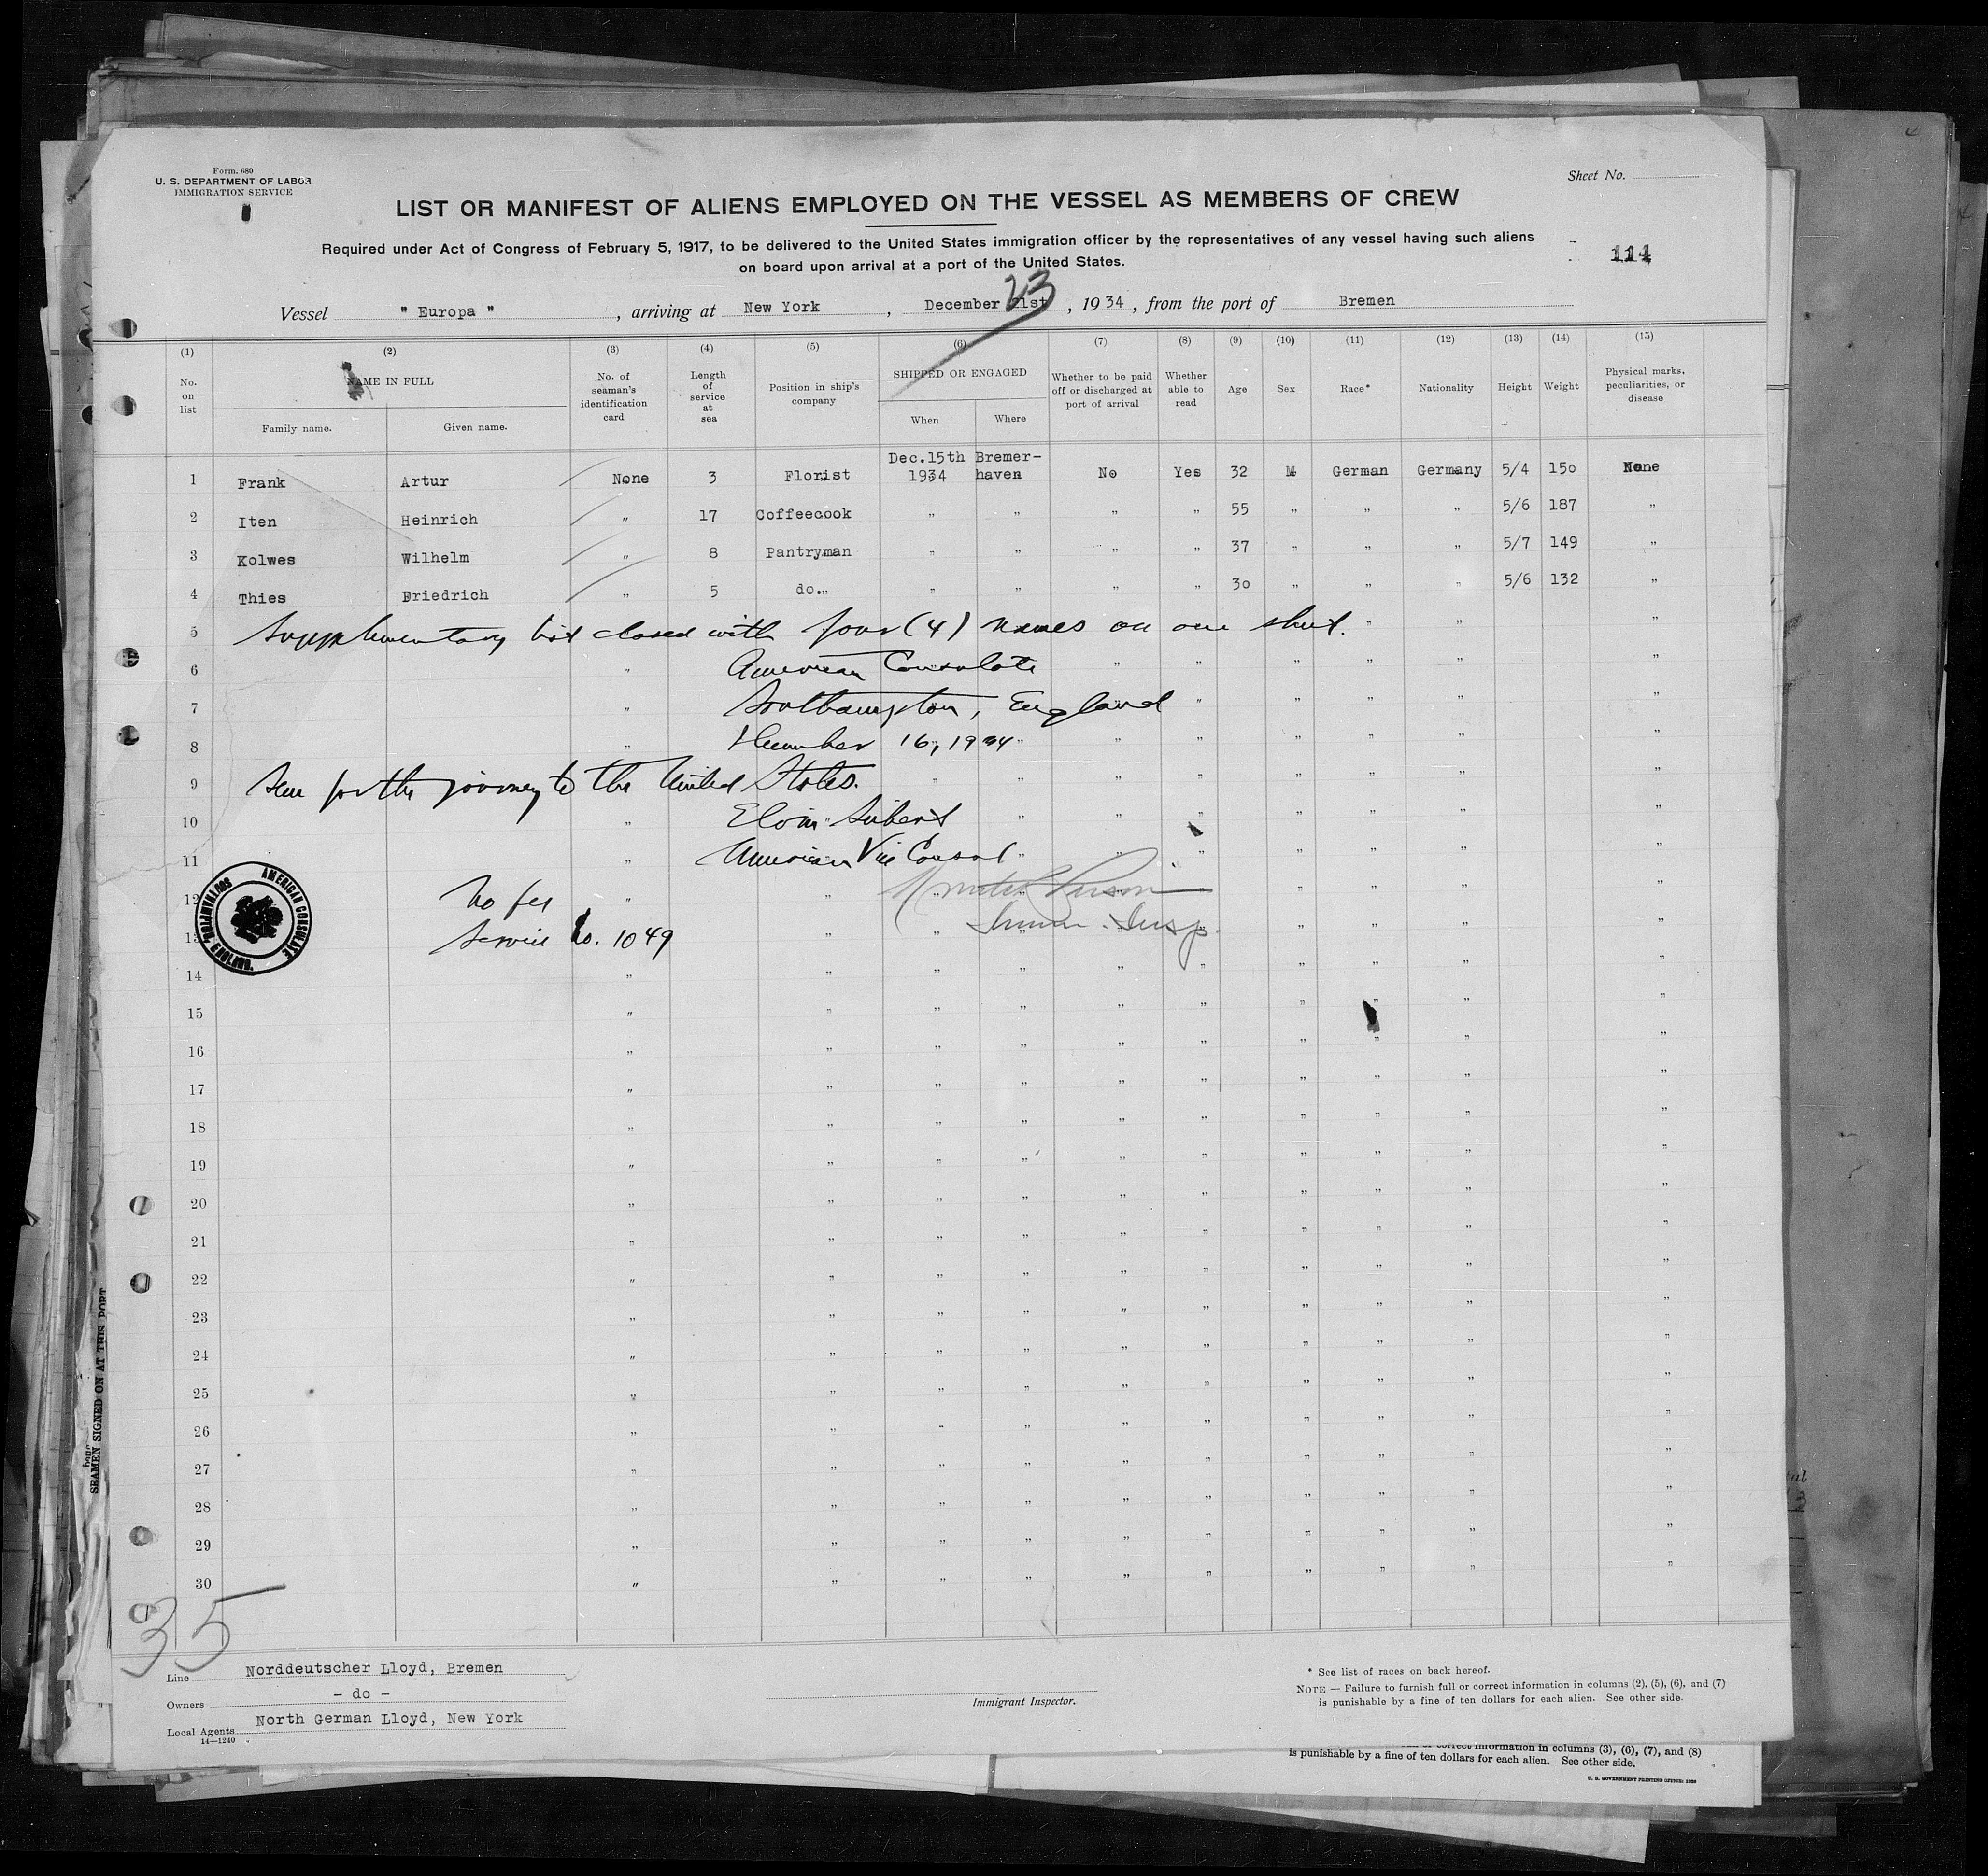 Form. 680
U. S. DEPARTMENT OF LABOR
IMMIGRATION SERVICE
Sheet No.
LIST OR MANIFEST OF ALIENS EMPLOYED ON THE VESSEL AS MEMBERS OF CREW
Required under Act of Congress of February 5, 1917, to be delivered to the United States immigration officer by the representatives of any vessel having such aliens
on board upon arrival at a port of the United States.
114
Vessel " Europa " , arriving at New York , December 21st 23 , 19 34 , from the port of Bremen
(1) (2) (3) (4) (5) (6) (7) (8) (9) (10) (11) (12) (13) (14) (15)
No. on list NAME IN FULL Family name. Given name. No. of seaman's identification card Length of service at sea Position in ship's company SHIPPED OR ENGAGED When Where Whether to be paid off or discharged at port of arrival Whether able to read Age Sex Race* Nationality Height Weight Physical marks, peculiarities, or disease
1 Frank Artur None 3 Florist Dec.15th 1934 Bremer-haven No Yes 32 M German Germany 5/4 150 None
2 Iten Heinrich " 17 Coffeecook " " " " 55 " " " 5/6 187 "
3 Kolwes Wilhelm " 8 Pantryman " " " " 37 " " " 5/7 149 "
4 Thies Friedrich " 5 do." " " " " 30 " " " 5/6 132 "
5 Supplementary list closed with four (4) names on one sheet. " " "
6 American Consulate
7 Southampton, England
8 December 16, 1934
9 Seen for the journey to the United States.
10 Elvin Seibert
11 American Vice Consul
12 No fee
Immn. Insp.
13 Service No. 1049
AMERICAN CONSULATE
SOUTHAMPTON, ENGLAND.
14
15
16
17
18
19
20
21
22
23
24
25
26
27
28
29
30
35
Line Norddeutscher Lloyd, Bremen
Owners - do -
Local Agents North German Lloyd, New York
14—1240
Immigrant Inspector.
* See list of races on back hereof.
NOTE — Failure to furnish full or correct information in columns (2), (5), (6), and (7)
is punishable by a fine of ten dollars for each alien. See other side.
correct information in columns (3), (6), (7), and (8)
is punishable by a fine of ten dollars for each alien. See other side.
SEAMEN SIGNED ON AT THIS PORT